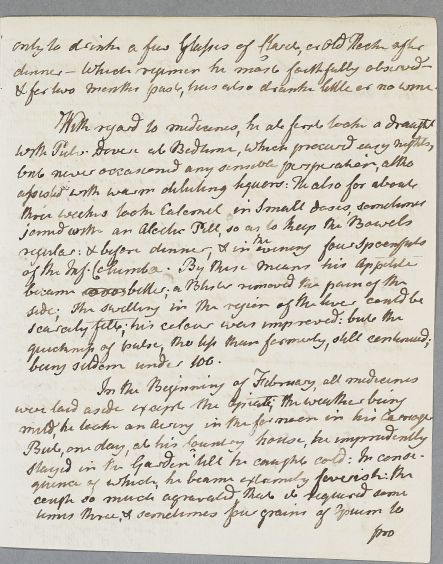 only to drink a few Glasses of Claret, or Old Hock after
dinner – Which regimen he most faithfully observed –
& for two months past, has also drank little or no wine.
With regard to medicines, he at first took a draught
with Pulv. Dover at Bedtime, which procured easy nights,
but never occasioned any sensible perspiration, altho
assisted with warm diluting liquors: He also for about
three weeks took Calomel in Small doses, sometimes
joined with an Aloetic Pill, so as to keep the Bowels
regular: & before dinner, & in the evening four spoonfuls
of the Inf. Columba. By these means his Appetite
became better, a Blister removed the pain of the
side; The swelling in the region of the liver could be
scarcely felt; his colour was improved: but the
quickness of pulse, tho less than formerly, still continued;
being seldom under 100.
In the Beginning of February, all medicines
were laid aside except the; the weather being
mild, he took an airing in the forenoon in his Carriage
But, one day, at his Country house, he imprudently
stayed in the Garden till he caught cold. In conse-
quence of which, he became extremely feverish: the
cough so much agravated, that it required some
times three, & sometimes four grains of Opium to
pro